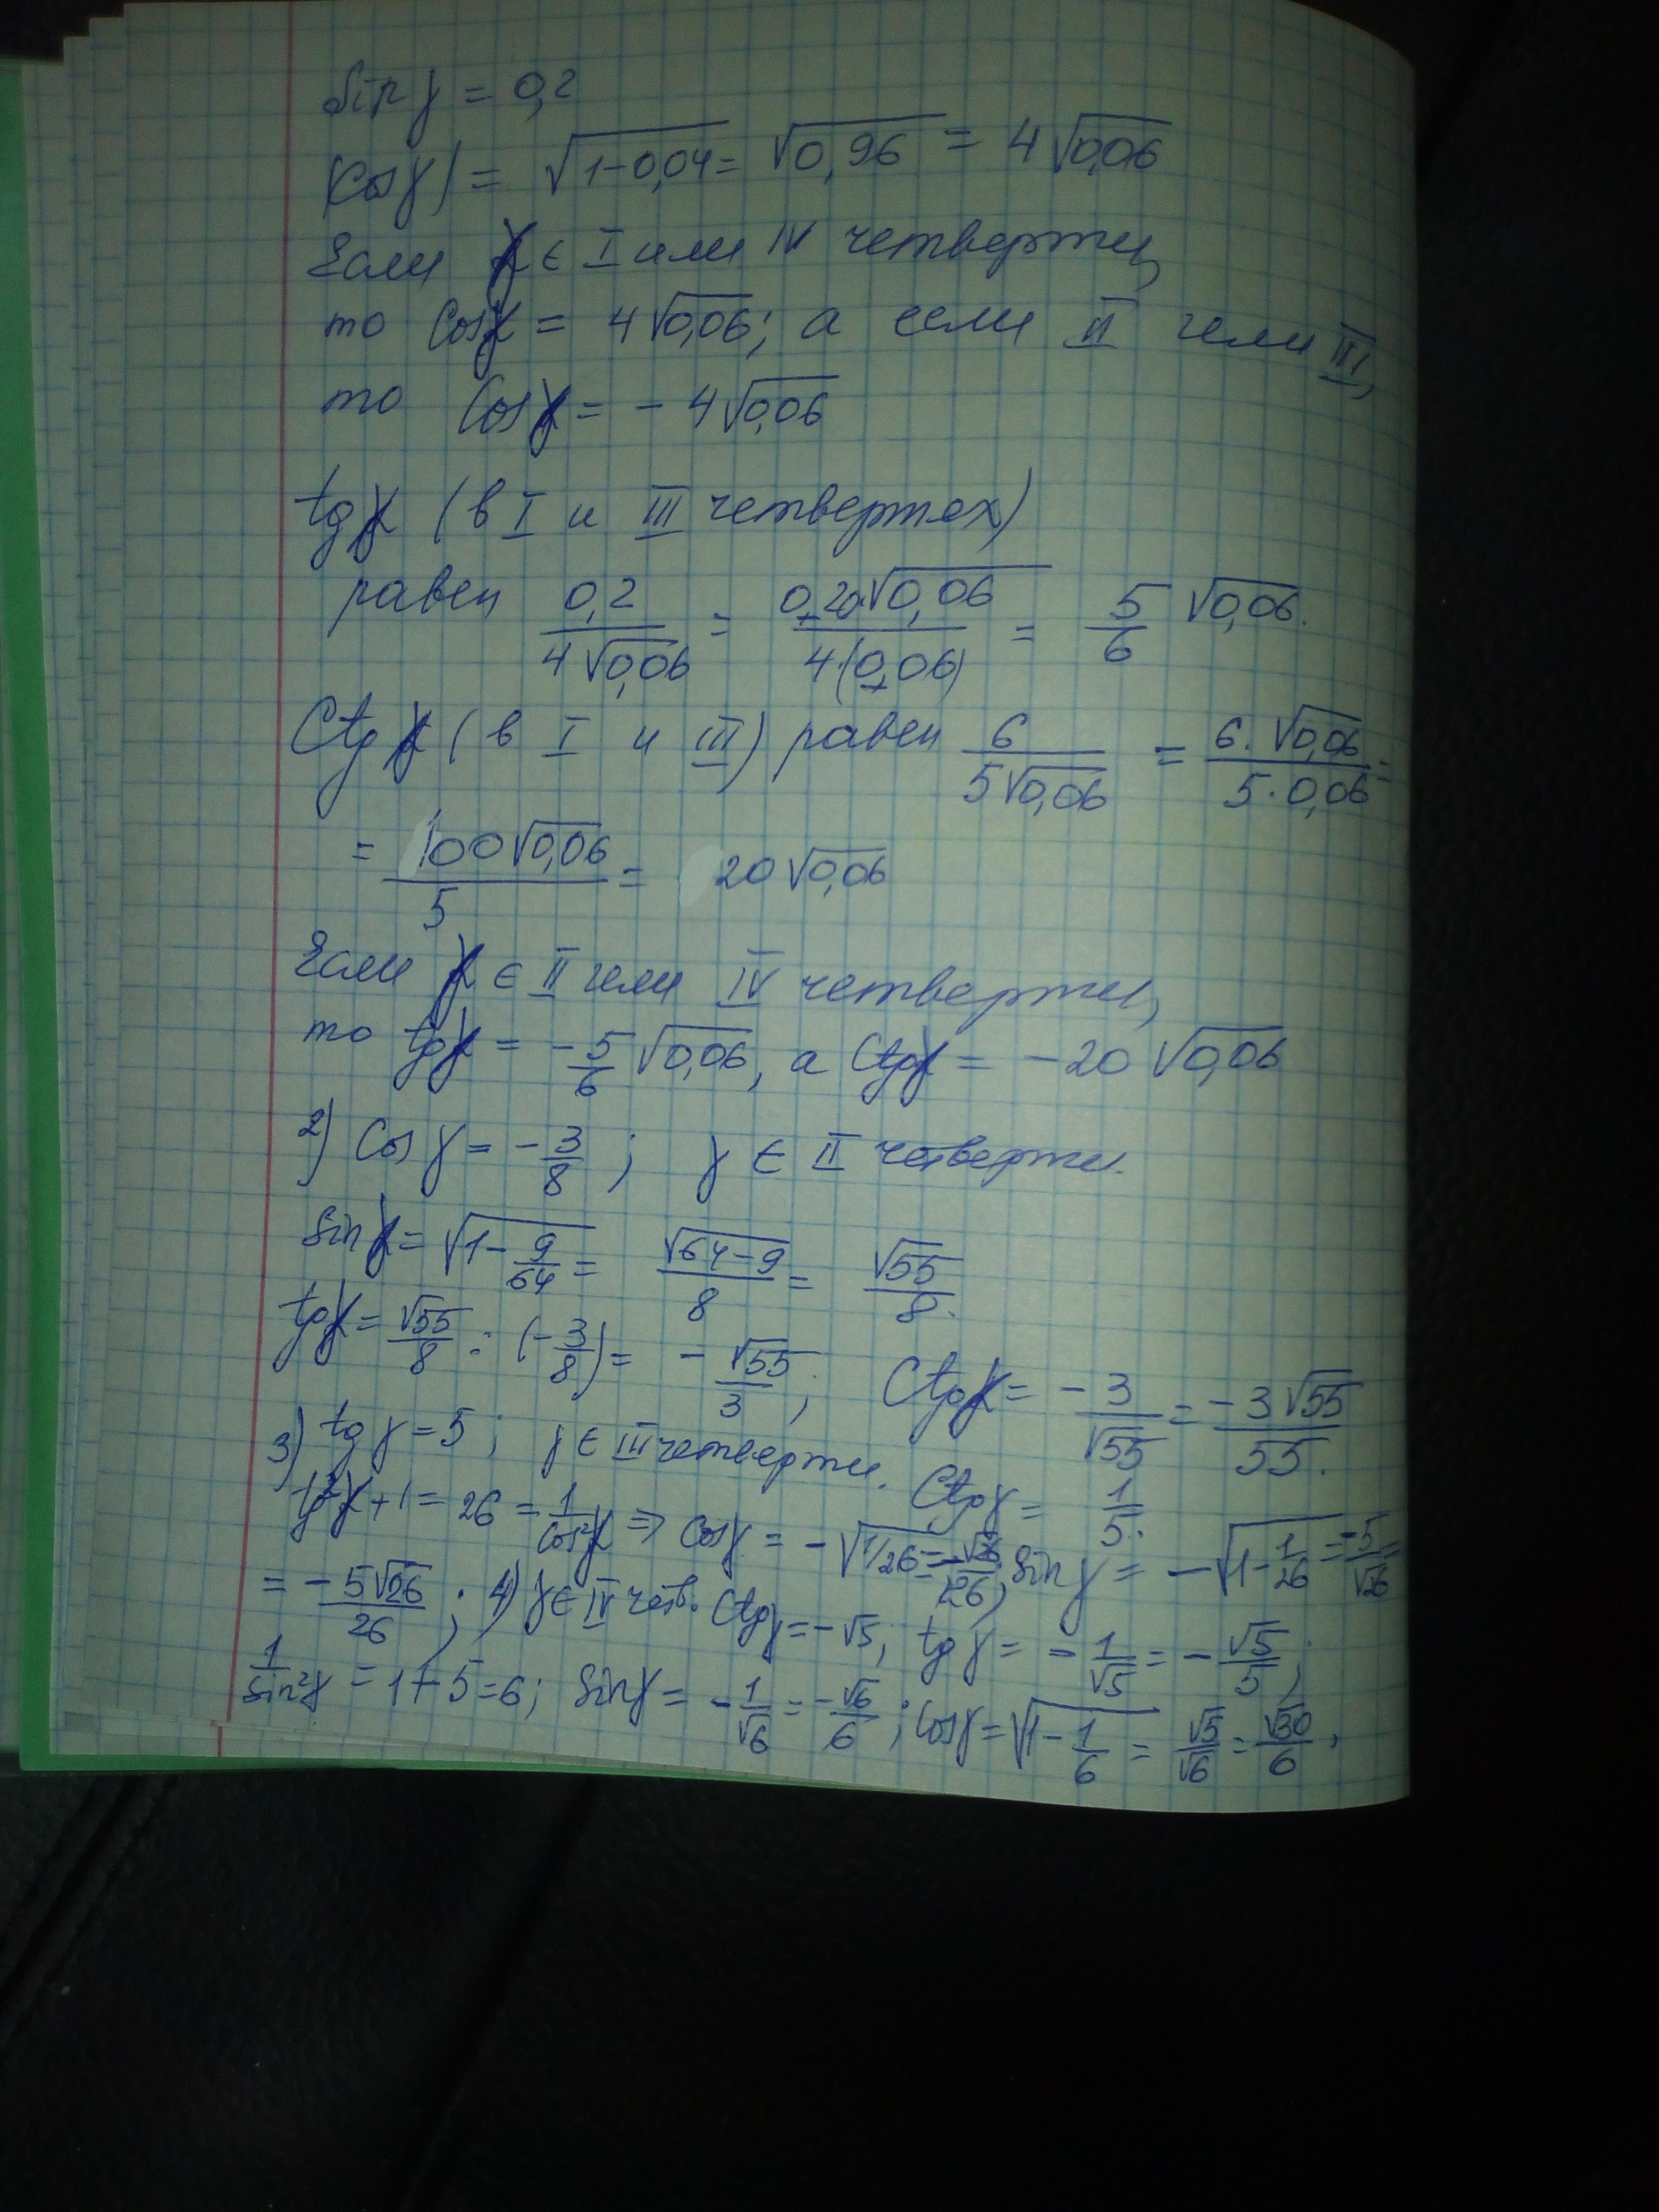 sin γ = 0,2
|cos γ| = √(1-0,04) = √0,96 = 4√0,06
Если γ ∈ I или IV четверти,
то cos γ = 4√0,06; а если II или III,
то cos γ = - 4√0,06
tg γ (в I и III четвертях)
равен 0,2/(4√0,06) = 0,20·√0,06/(4·(0,06)) = 5/6 √0,06.
Ctg γ (в I и III) равен 6/(5√0,06) = 6·√0,06/(5·0,06) =
= 100√0,06/5 = 20√0,06
Если γ ∈ II или IV четверти,
то tg γ = -5/6 √0,06, а Ctg γ = -20√0,06
2) Cos γ = -3/8; γ ∈ II четверти.
sin γ = √(1-9/64) = √(64-9)/8 = √55/8.
tg γ = √55/8 : (-3/8) = - √55/3; Ctg γ = -3/√55 = -3√55/55.
3) tg γ = 5; γ ∈ III четверти. Ctg γ = 1/5.
tg²γ + 1 = 26 = 1/cos²γ ⇒ cos γ = -√(1/26) = -√26/26; sin γ = -√(1-1/26) = -5/√26 =
= -5√26/26; 4) γ ∈ IV четв. Ctg γ = -√5; tg γ = -1/√5 = -√5/5;
1/sin²γ = 1+5=6; sin γ = -1/√6 = -√6/6; cos γ = √(1-1/6) = √5/√6 = √30/6.